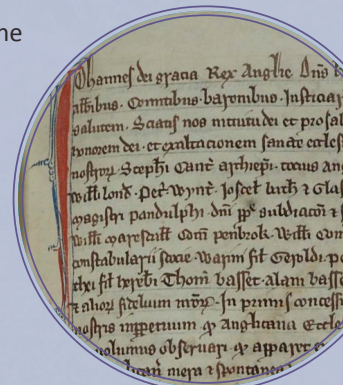 me
Johannes dei gracia Rex Anglie Dns
abbibus. Comitibus. baronibus. Justiciar
salutem. Sciatis nos intuitu dei et pro sal
honorem dei. et exaltacionem sancte eccles
nostrorum. Stephi Cant archiepi. tocius Ang
Willi lond. Petr Wynt. Joscel bath & Glas
magistri Pandulphi. dni pp subdiaconi &
Willi marescall Com penbrok. Willi Com
constabularii Warin fil Geroldi. pe
fil herbti Thom basset. alam basse
& alior fidelium nror. In primis concessi
nostris imperpetuum q Anglicana Eccle
volumus observari. q appare
mera & spontanea